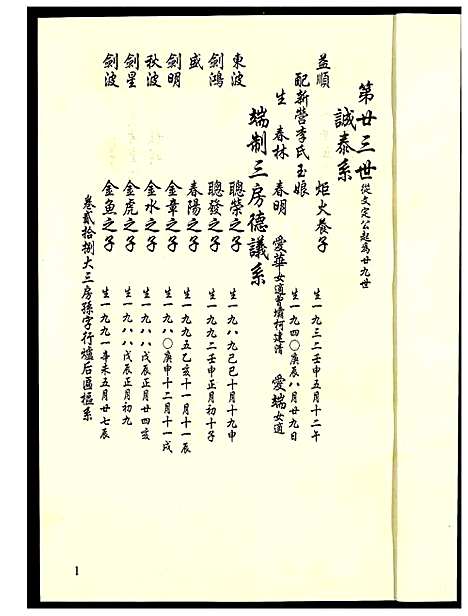 第廿三世 從文定公起為廿九世
誠泰系
益順 炬火養子 生一九三二壬申五月十二午
配新營李氏玉娘 生一九四〇庚辰八月廿九日
生 春林 春明 愛華女適曹壩柯建清 愛端女適
端制三房德議系
東波 聰榮之子 生一九八九己巳十月十九申
劍鴻 聰發之子 生一九九二壬申正月初十子
盛 春陽之子 生一九九五乙亥十一月十一辰
劍明 金章之子 生一九八〇庚申十二月十一戌
秋波 金水之子 生一九八八戊辰正月廿四亥
劍星 金虎之子 生一九八八戊辰正月初九
劍波 金魚之子 生一九九一辛未五月廿七辰
卷貳拾捌大三房孫字行爐后區樞系
1